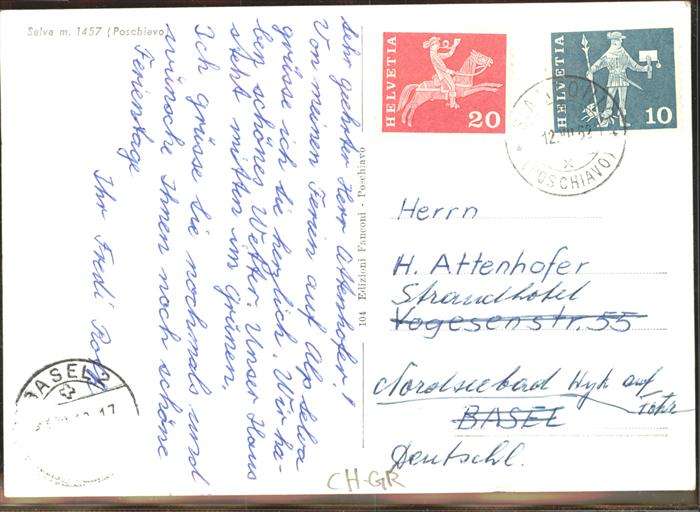 Selva m. 1457 (Poschiavo)
Sehr geehrter Herr Attenhofer!
Von meinen Ferien auf Alp Selva
grüsse ich sie herzlich. Wir ha-
ben schönes Wetter. Unser Haus
steht mitten im grünen.
Ich grüsse sie nochmals und
wünsche Ihnen noch schöne
Ferientage
Ihr Fredi
104 Edizioni Fanconi - Poschiavo
HELVETIA
20
HELVETIA
10
(POSCHIAVO)
Herrn
H. Attenhofer
Strandhotel
Vogesenstr. 55
Nordseebad Wyk auf
Föhr
BASEL
Deutschl.
BASEL 2
CH-GR